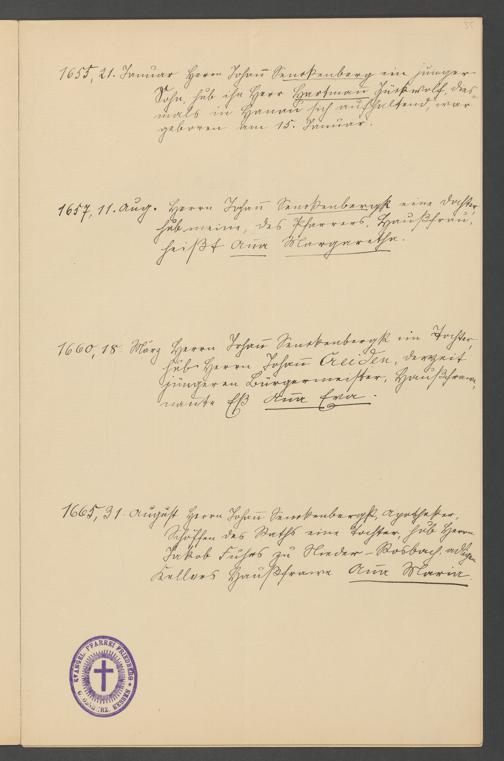 35
1655, 21. Januar Herrn Johañ Senckenberg ein junger
Sohn, hub ihn Herr Hartman Guckwolf, das
mals in Hanau sich aufhaltend, war
geboren am 15. Januar.
1657, 11. Aug. Herrn Johañ Senckenbergk eine Tochter,
hub meine, des Pfarrers, Haußfrau,
heißt Aña Margaretha.
1660, 18 März Herrn Johañ Senckenbergk ein Tochter,
hub Herrn Johañ derzeit
jüngeren Bürgermeister, Haußfraw,
nante Eß Aña Eva.
1665, 31 August Herrn Johañ Senckenbergk, Apotheker,
Schöffen des Raths eine Tochter, hub Herrn
Jakob Fuhrs zu Nieder-Rosbach, adligen
Kellers Haußfrawe Aña Maria.
EVANGEL. PFARREI FRIEDBERG
HESSEN